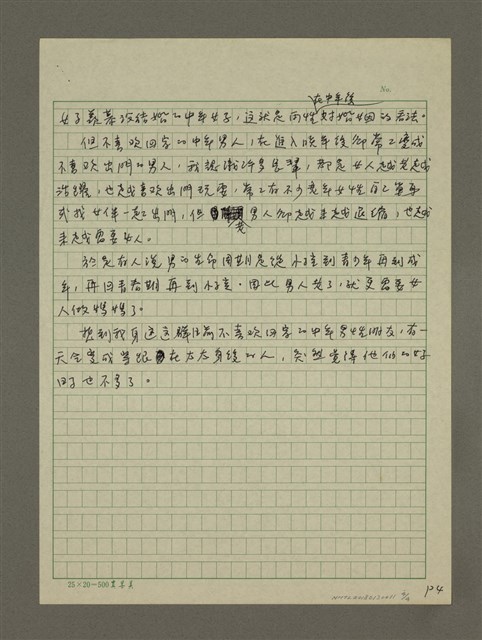 No.
在中年後
女子羨慕沒結婚的中年女子，這就是兩性對婚姻的看法。
但不喜歡回家的中年男人，在進入晚年後卻常常變成
不喜歡出門的男人，我認識許多長輩，都是女人越老越
活躍，也越喜歡出門玩耍，常常在不少老年女性自己單獨
或找女伴一起出門，但男人卻越來越退縮，也越
老
來越需要女人。
於是有人說男的生命週期是從小孩到青少年再到成
年，再回青春期再到小孩。因此男人老了，就更需要女
人做媽媽了。
想到我身邊這群目前不喜歡回家的中年男性朋友，有一
天會變成等跟在太太身後的人，突然覺得他們的好
日子也不多了。
25×20=500
P4